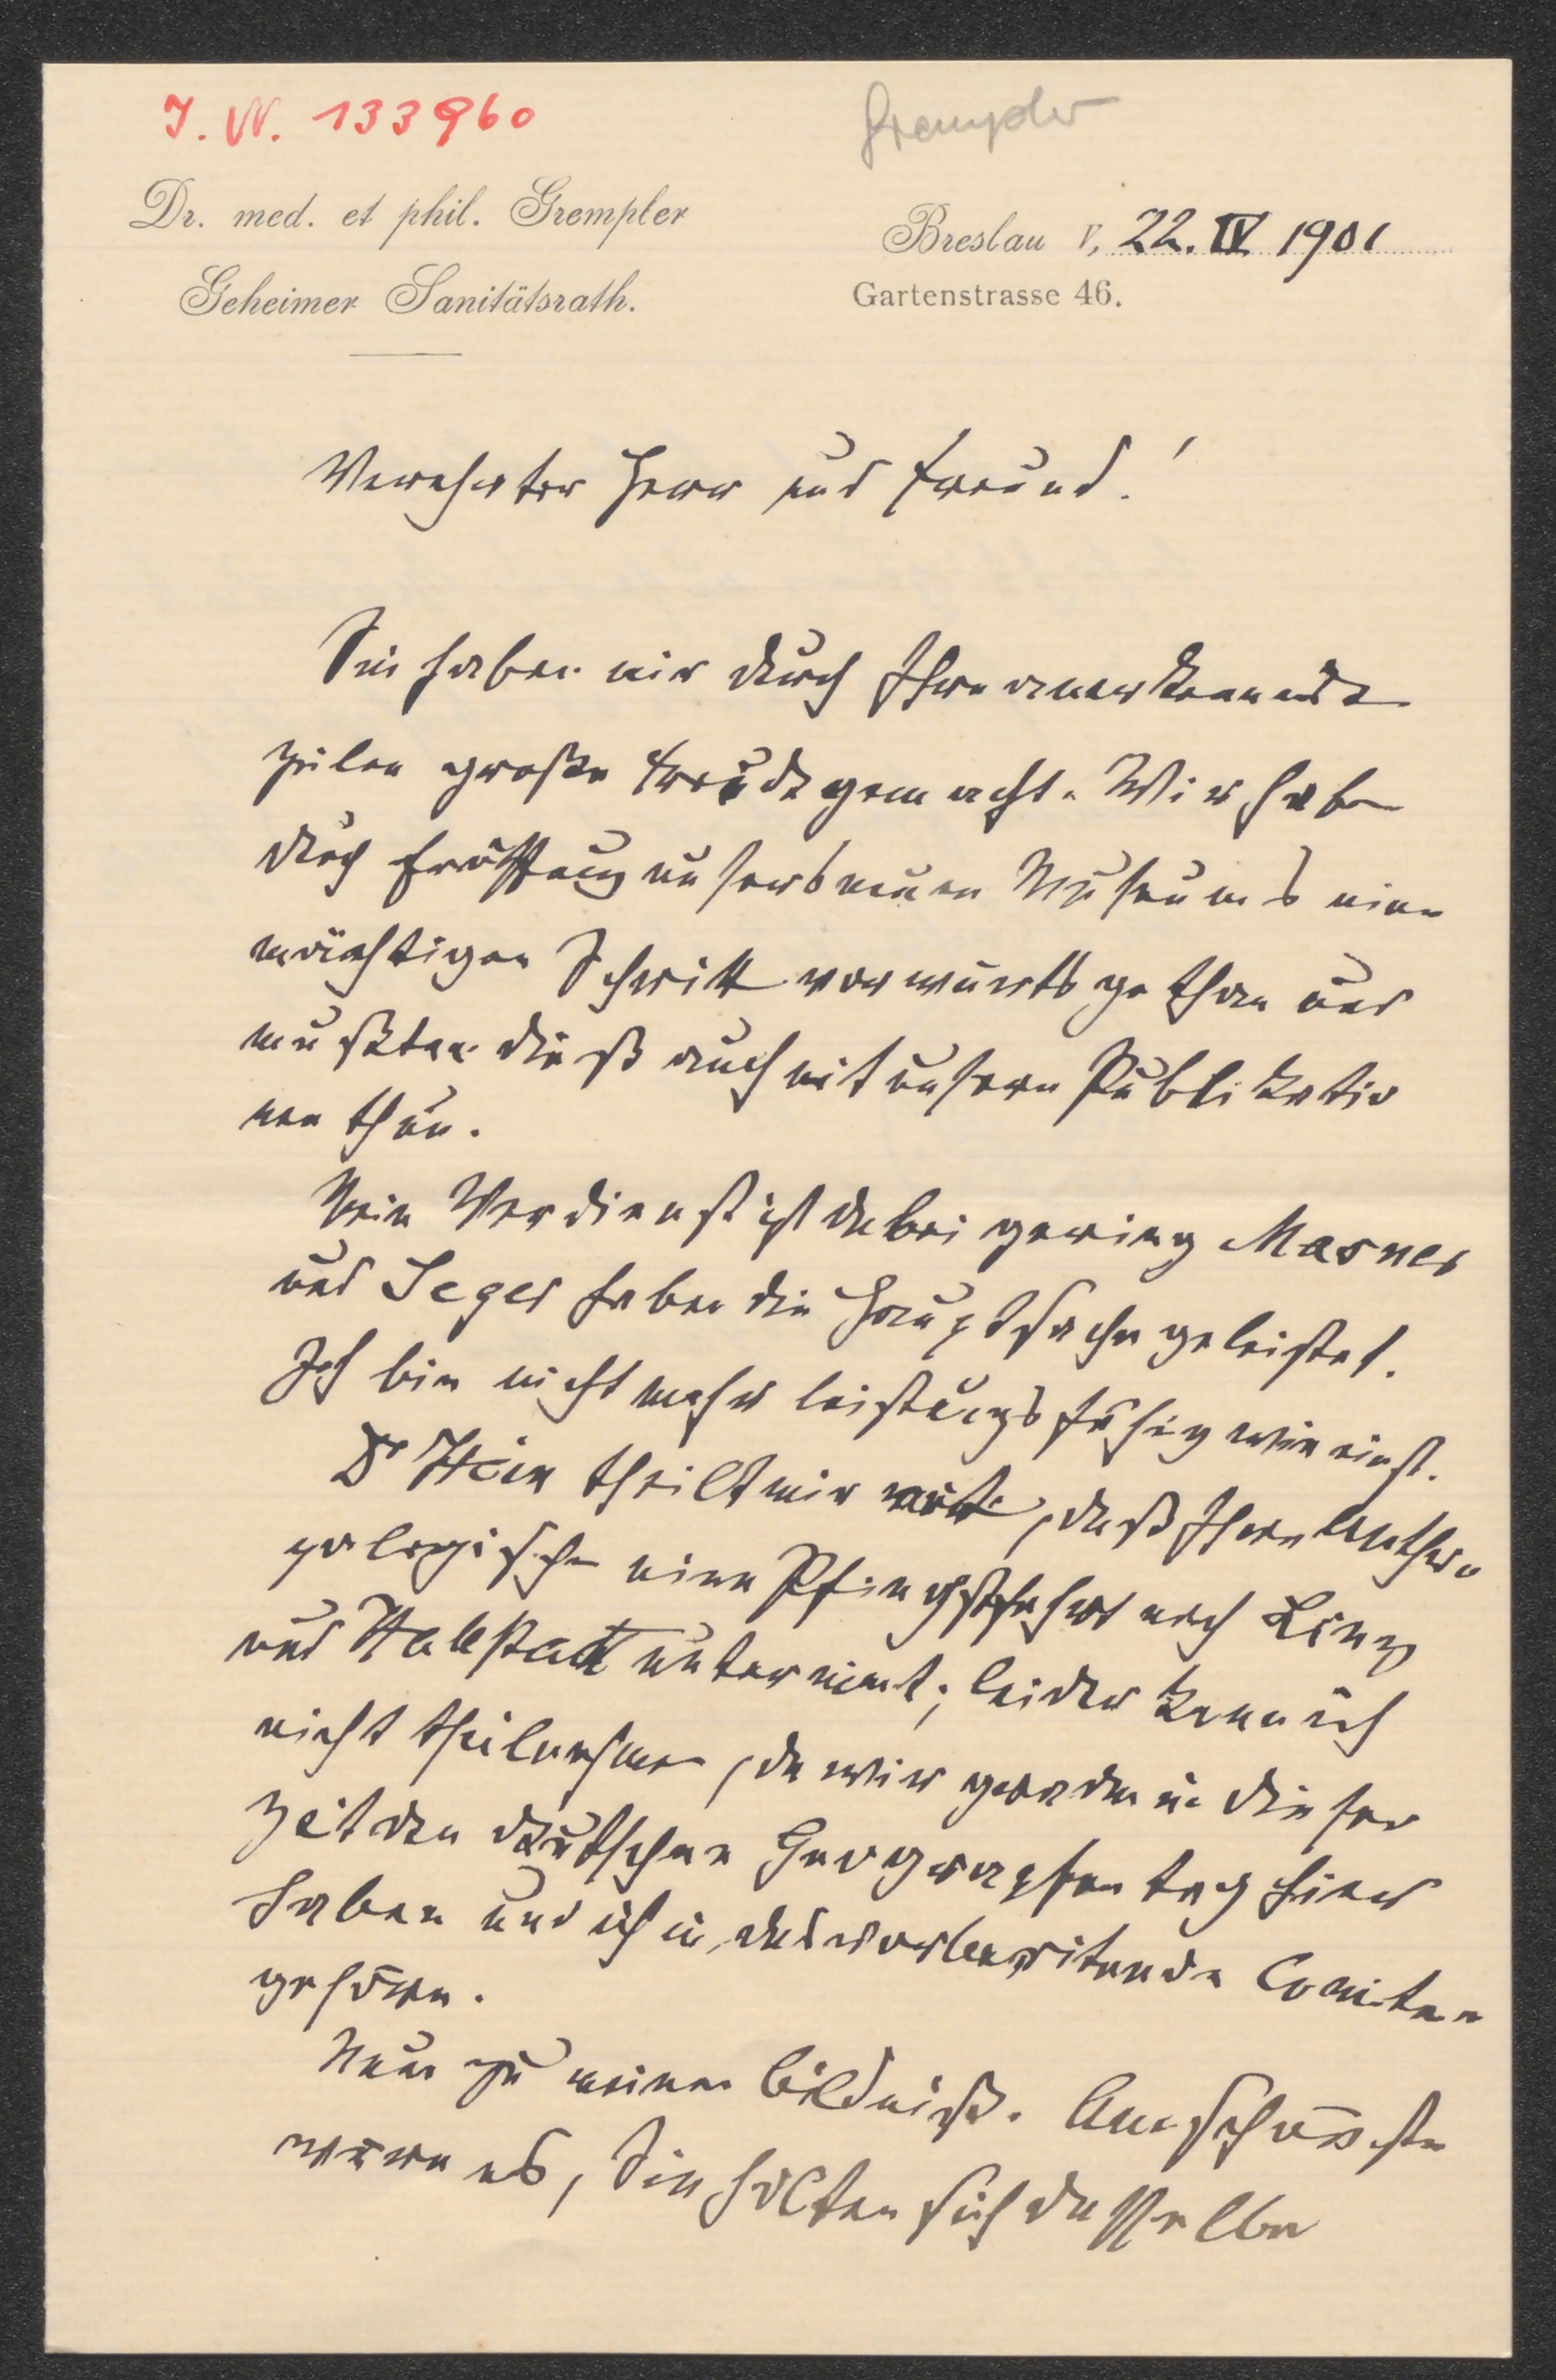 I. N. 133960
Grempler
Dr. med. et phil. Grempler
Geheimer Sanitätsrath.
Breslau V, 22. IV 1901
Gartenstrasse 46.
Verehrter Herr und Freund!
Sie haben mir durch Ihre anerkennende
Zeilen große Freude gemacht. Wir haben
durch Eröffnung unsers neuen Museums einen
mächtigen Schritt vorwärts gethan und
mußten dieß auch mit unsern Publikatio
nen thun.
Mein Verdienst ist dabei gering Masner
und Seger haben die Hauptsache geleistet.
Ich bin nicht mehr leistungsfähig wie einst.
Dr Hein theilt mir mit, daß Ihre Anthro
pologische eine Pfingstfahrt nach Linz
und Hallstatt unternimt; leider kann ich
nicht theilnehmen, da wir gerade in dieser
Zeit den deutschen Geographentag hier
haben und ich in das vorbereitende Comitee
gehöre.
Nun zu meinem Bildniß. Am schönsten
wäre es, Sie holten sich dasselbe